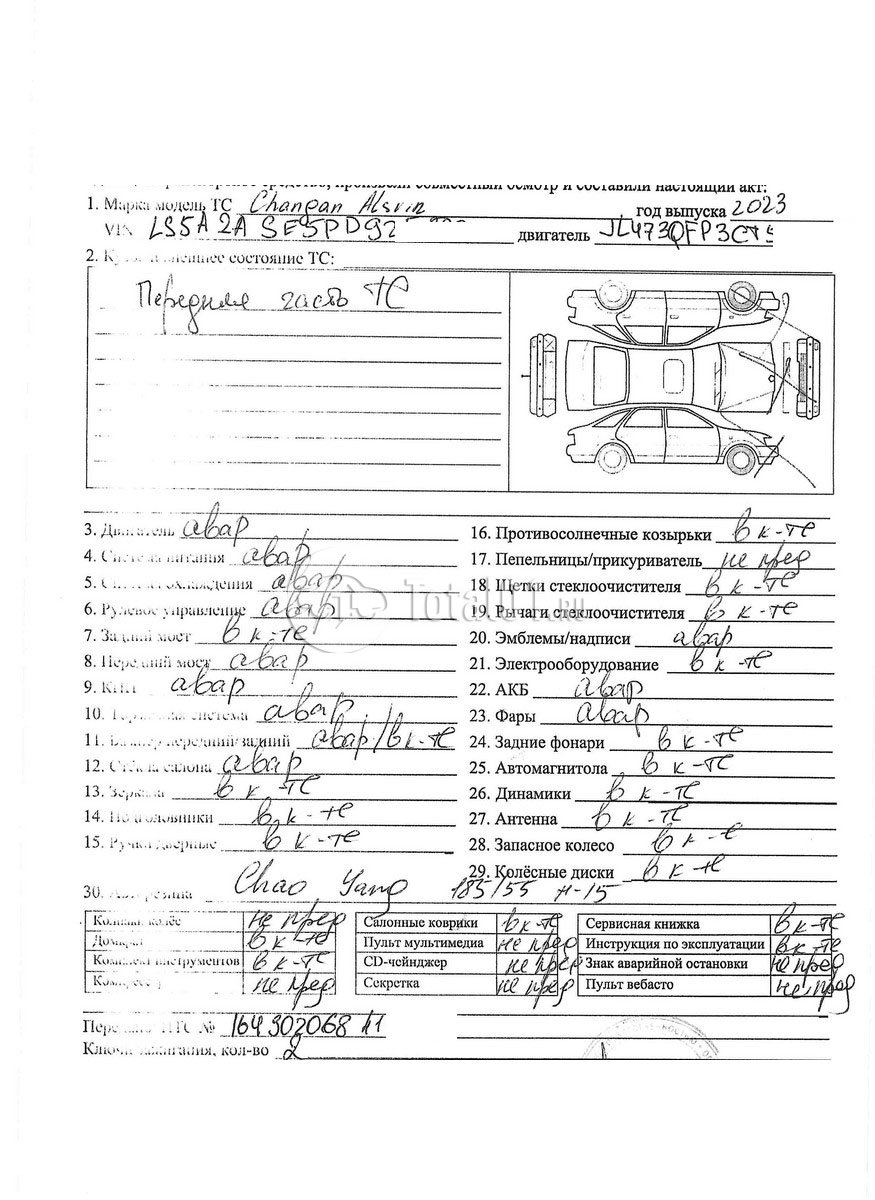 средство, произвели совместный осмотр и составили настоящий акт:
1. Марка модель ТС Changan Alsvin год выпуска 2023
VIN LS5A2A SE5PD92 двигатель JL473QFP3CT5
2. Кузов и внешнее состояние ТС:
Передняя часть ТС
3. Двигатель авар
4. Система питания авар
5. Система охлаждения авар
6. Рулевое управление авар
7. Задний мост в к-те
8. Передний мост авар
9. КПП авар
10. Тормозная система авар
11. Бампер передний/задний авар/в к-те
12. Стёкла салона авар
13. Зеркала в к-те
14. Подголовники в к-те
15. Ручки дверные в к-те
16. Противосолнечные козырьки в к-те
17. Пепельницы/прикуриватель не пред
18. Щетки стеклоочистителя в к-те
19. Рычаги стеклоочистителя в к-те
20. Эмблемы/надписи авар
21. Электрооборудование в к-те
22. АКБ авар
23. Фары авар
24. Задние фонари в к-те
25. Автомагнитола в к-те
26. Динамики в к-те
27. Антенна в к-те
28. Запасное колесо в к-те
29. Колёсные диски в к-те
30. Авторезина Chao Yang 185/55 R-15
Колпаки колёс не пред
Домкрат в к-те
Комплект инструментов в к-те
Компрессор не пред
Салонные коврики в к-те
Пульт мультимедиа не пред
CD-чейнджер не пред
Секретка не пред
Сервисная книжка в к-те
Инструкция по эксплуатации в к-те
Знак аварийной остановки не пред
Пульт вебасто не пред
Передано ПТС № 164302068 41
Ключи зажигания, кол-во 2
Total01.ru